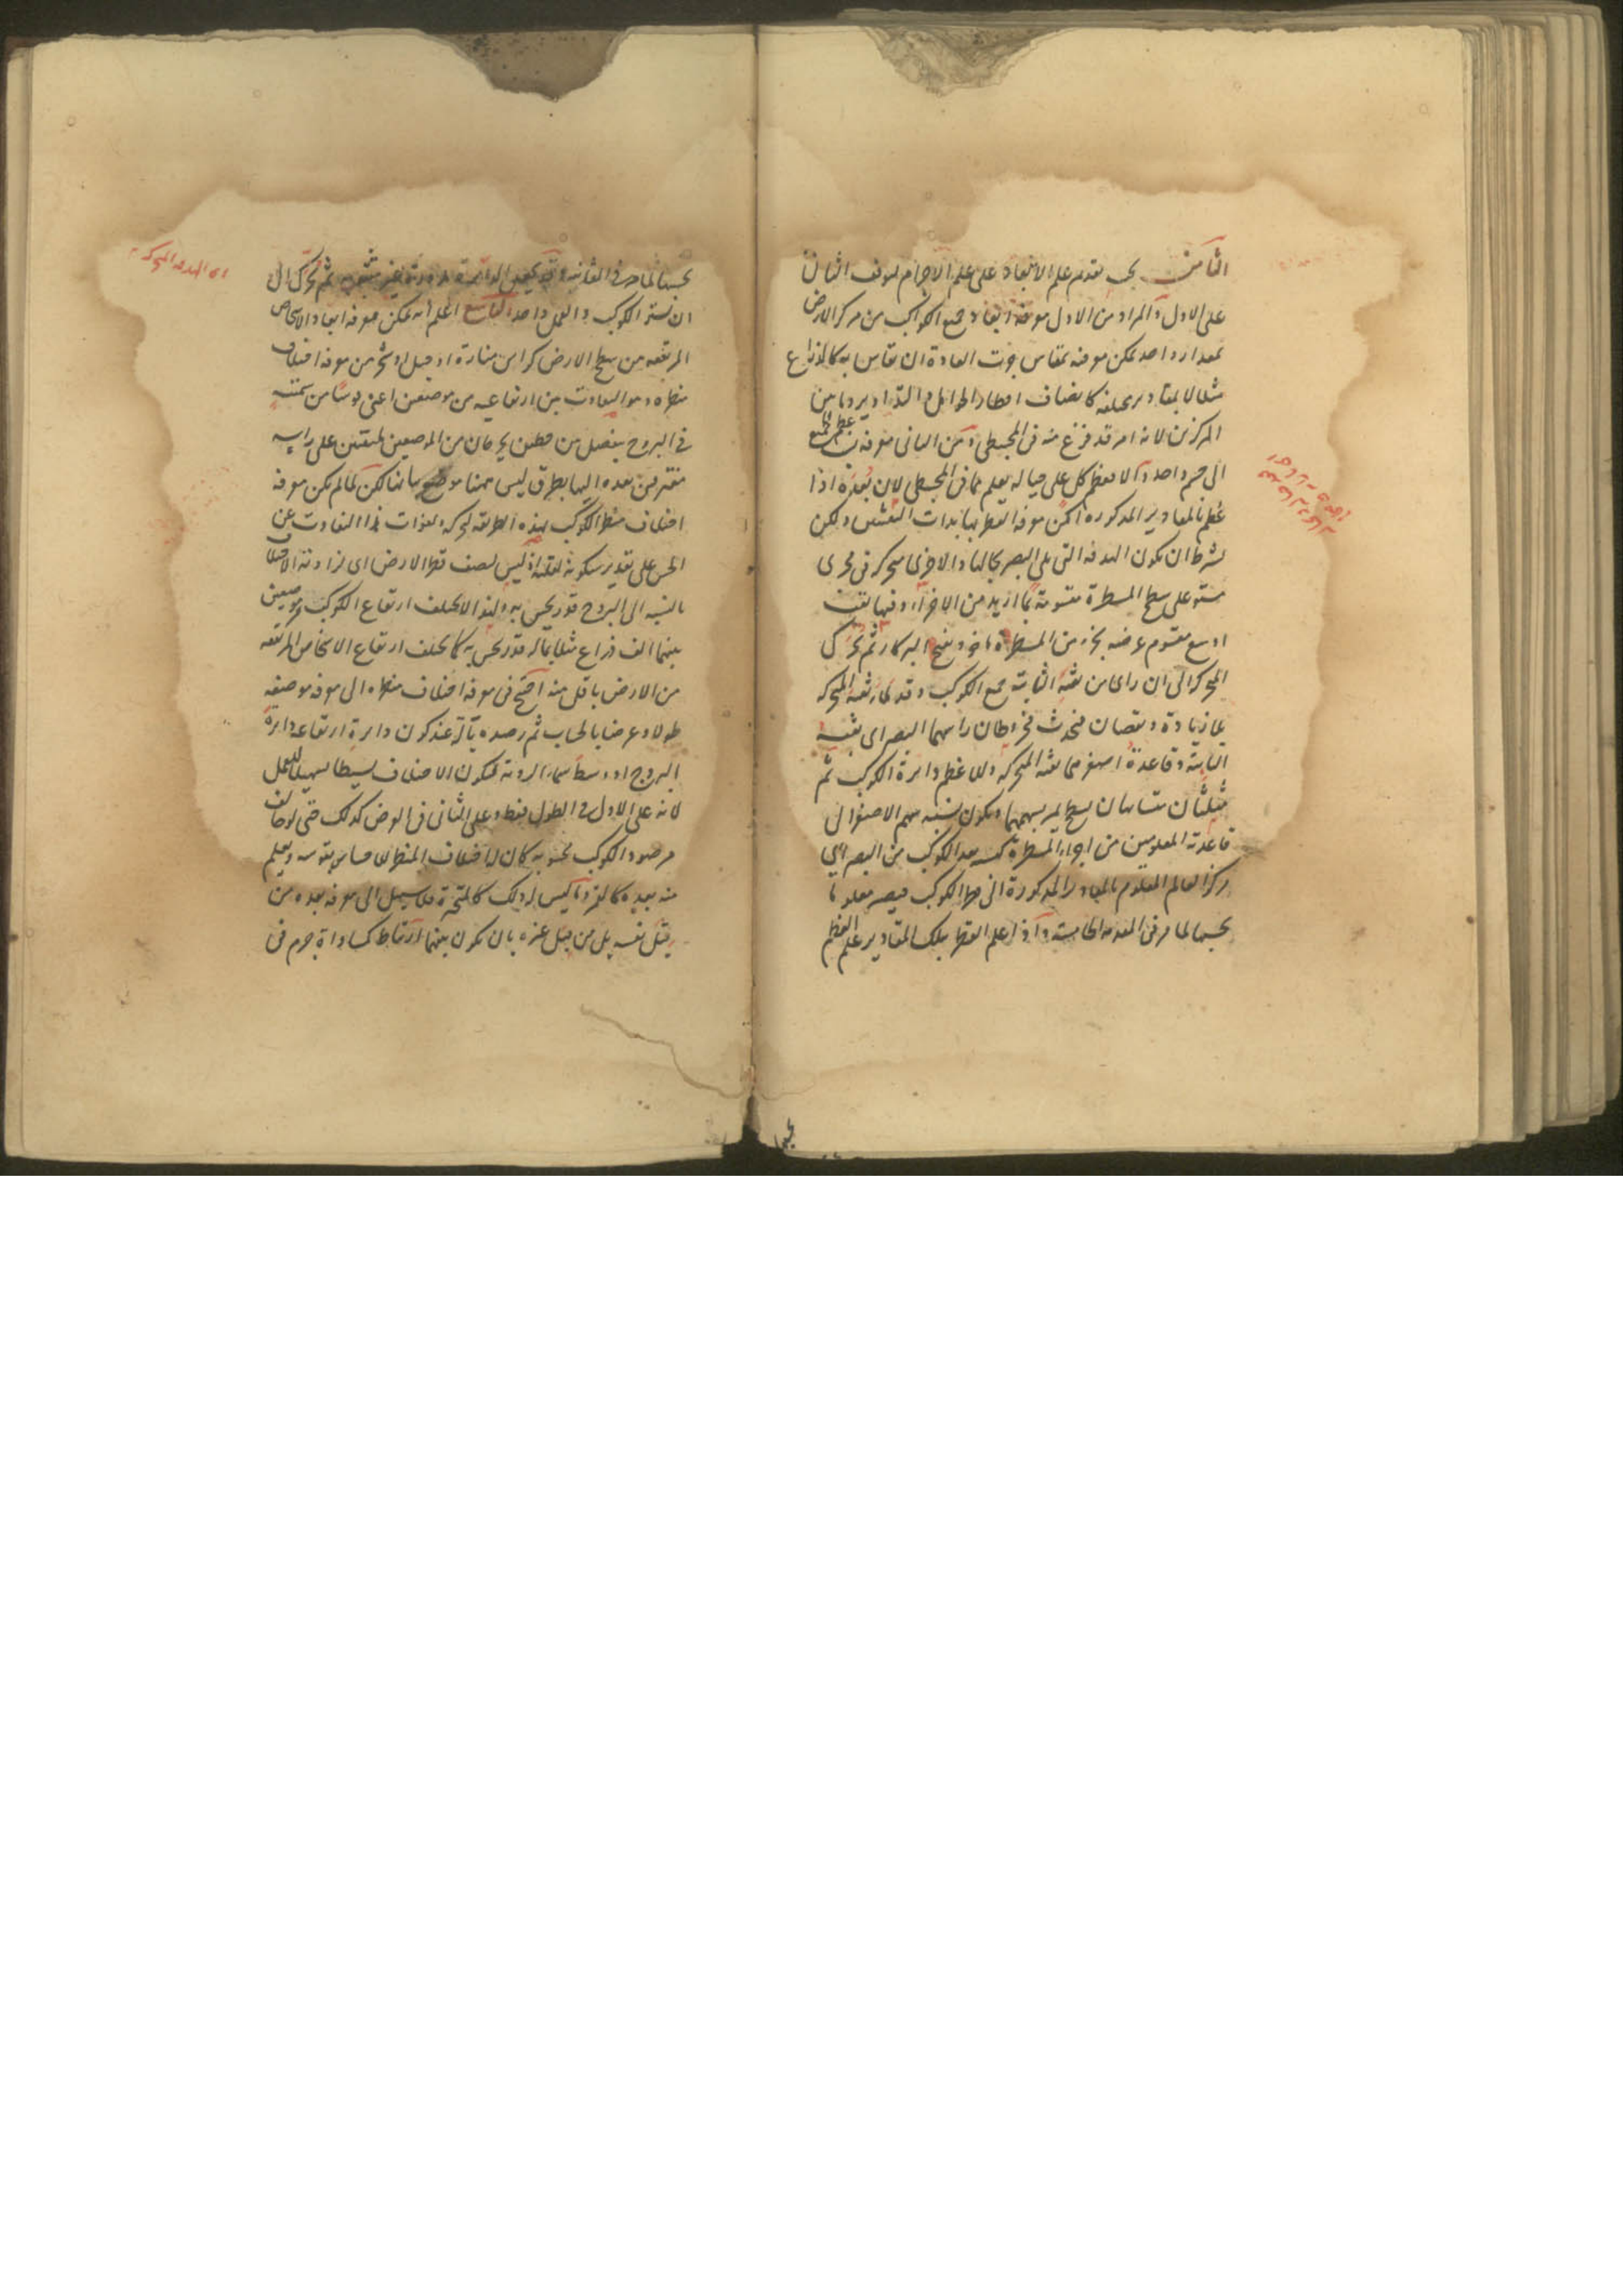 الثامن يجب تقدم علم الابعاد على علم الاجرام لتوقف الثانى
على الاول والمراد من الاول معرفة ابعاد جميع الكواكب من مركز الارض
بمقدار واحد يمكن معرفته بمقاس جرت العادة ان يقاس به كالذراع
مثلا لا بمقادير مختلفة كانصاف اقطار الحوامل والتداوير وما بين
المركزين لانه امر قد فرغ عنه فى المجسطى ومن الثانى معرفة نسبة عظم الجميع
الى جرم واحد والا فعظم كل على حياله يعلم مما فى المجسطى لان بعده اذا
علم بالمقادير المذكورة امكن معرفة القطر بها بذات الثقبتين ولكن
بشرط ان يكون الهدفة التى تلى البصر بحالها والاخرى متحركة فى مجرى
مستو على سطح المسطرة مقسومة بما ازيد من الاجزاء وفيها ثقب
اوسع مقسوم عرضه بجزء من المسطرة ثم تحرك
المتحركة الى ان راى من ثقبة الثابتة جميع الكوكب وقد ملأ ثقبة المتحركة
بلا زيادة ونقصان فيحدث مخروطان راسهما البصر اى ثقبة
الثابتة وقاعدة اصغرهما ثقبة المتحركة والاعظم دايرة الكوكب ثم
مثلثان متشابهان بسطح يمر بسهمهما ويكون نسبة سهم الاصغر الى
قاعدته المعلومين من اجزاء المسطرة كنسبة بعد الكوكب من البصر اى
مركز العالم المعلوم بالمقادير المذكورة الى قطر الكوكب فيصير معلوما
بحسبها لما مر فى المقدمة الخامسة واذا علم القطر بتلك المقادير علم العظم
بحسبها لما مر فى الثانية ثم تحرك الى
ان يستر الكوكب والعمل واحد التاسع اعلم انه يمكن معرفة ابعاد الاشخاص
المرتفعة من سطح الارض كراس منارة او جبل او شجر من معرفة اختلاف
منظره وهو التفاوت بين ارتفاعيه من موضعين اعنى قوسا من سمتيه
فى البروج يفصل بين خطين يخرجان من الموضعين ملتقيين على راسه
مفترقين بعده اليها بطرق ليس ههنا موضع بيانها لكن لما لم يكن معرفة
اختلاف منظر الكوكب بهذه الطريقة لحركته ولفوات هذا التفاوت عن
الحس على تقدير سكونه لعلته اذ ليس لنصف قطر الارض اى لزاوية الاختلاف
بالنسبة الى البروج قدر يحس به ولهذا لا يختلف ارتفاع الكوكب من موضعين
بينهما الف ذراع مثلا بماله قدر يحس به كما يختلف ارتفاع الاشخاص المرتفعة
من الارض باقل منه احتيج فى معرفة اختلاف منظره الى معرفة موضعه
طولا وعرضا بالحساب ثم رصده بآلة عند كون دايرة ارتفاعه دايرة
البروج او وسط سماء الروية ليكون الاختلاف بسيطا تسهيلا للعمل
لانه على الاول فى الطول فقط وعلى الثانى فى العرض كذلك حتى لو خالف
مرصود الكوكب محسوبه كان له اختلاف المنظر لا محالة بقوسه ويعلم
منه بعده كالقمر وما ليس له ذلك كالمتحيرة فلا سبيل الى معرفة بعده من
قبل نفسه بل من قبل غيره بان يكون بينهما ارتباط كمساواة جرم فى
اى الهدفة المتحركة